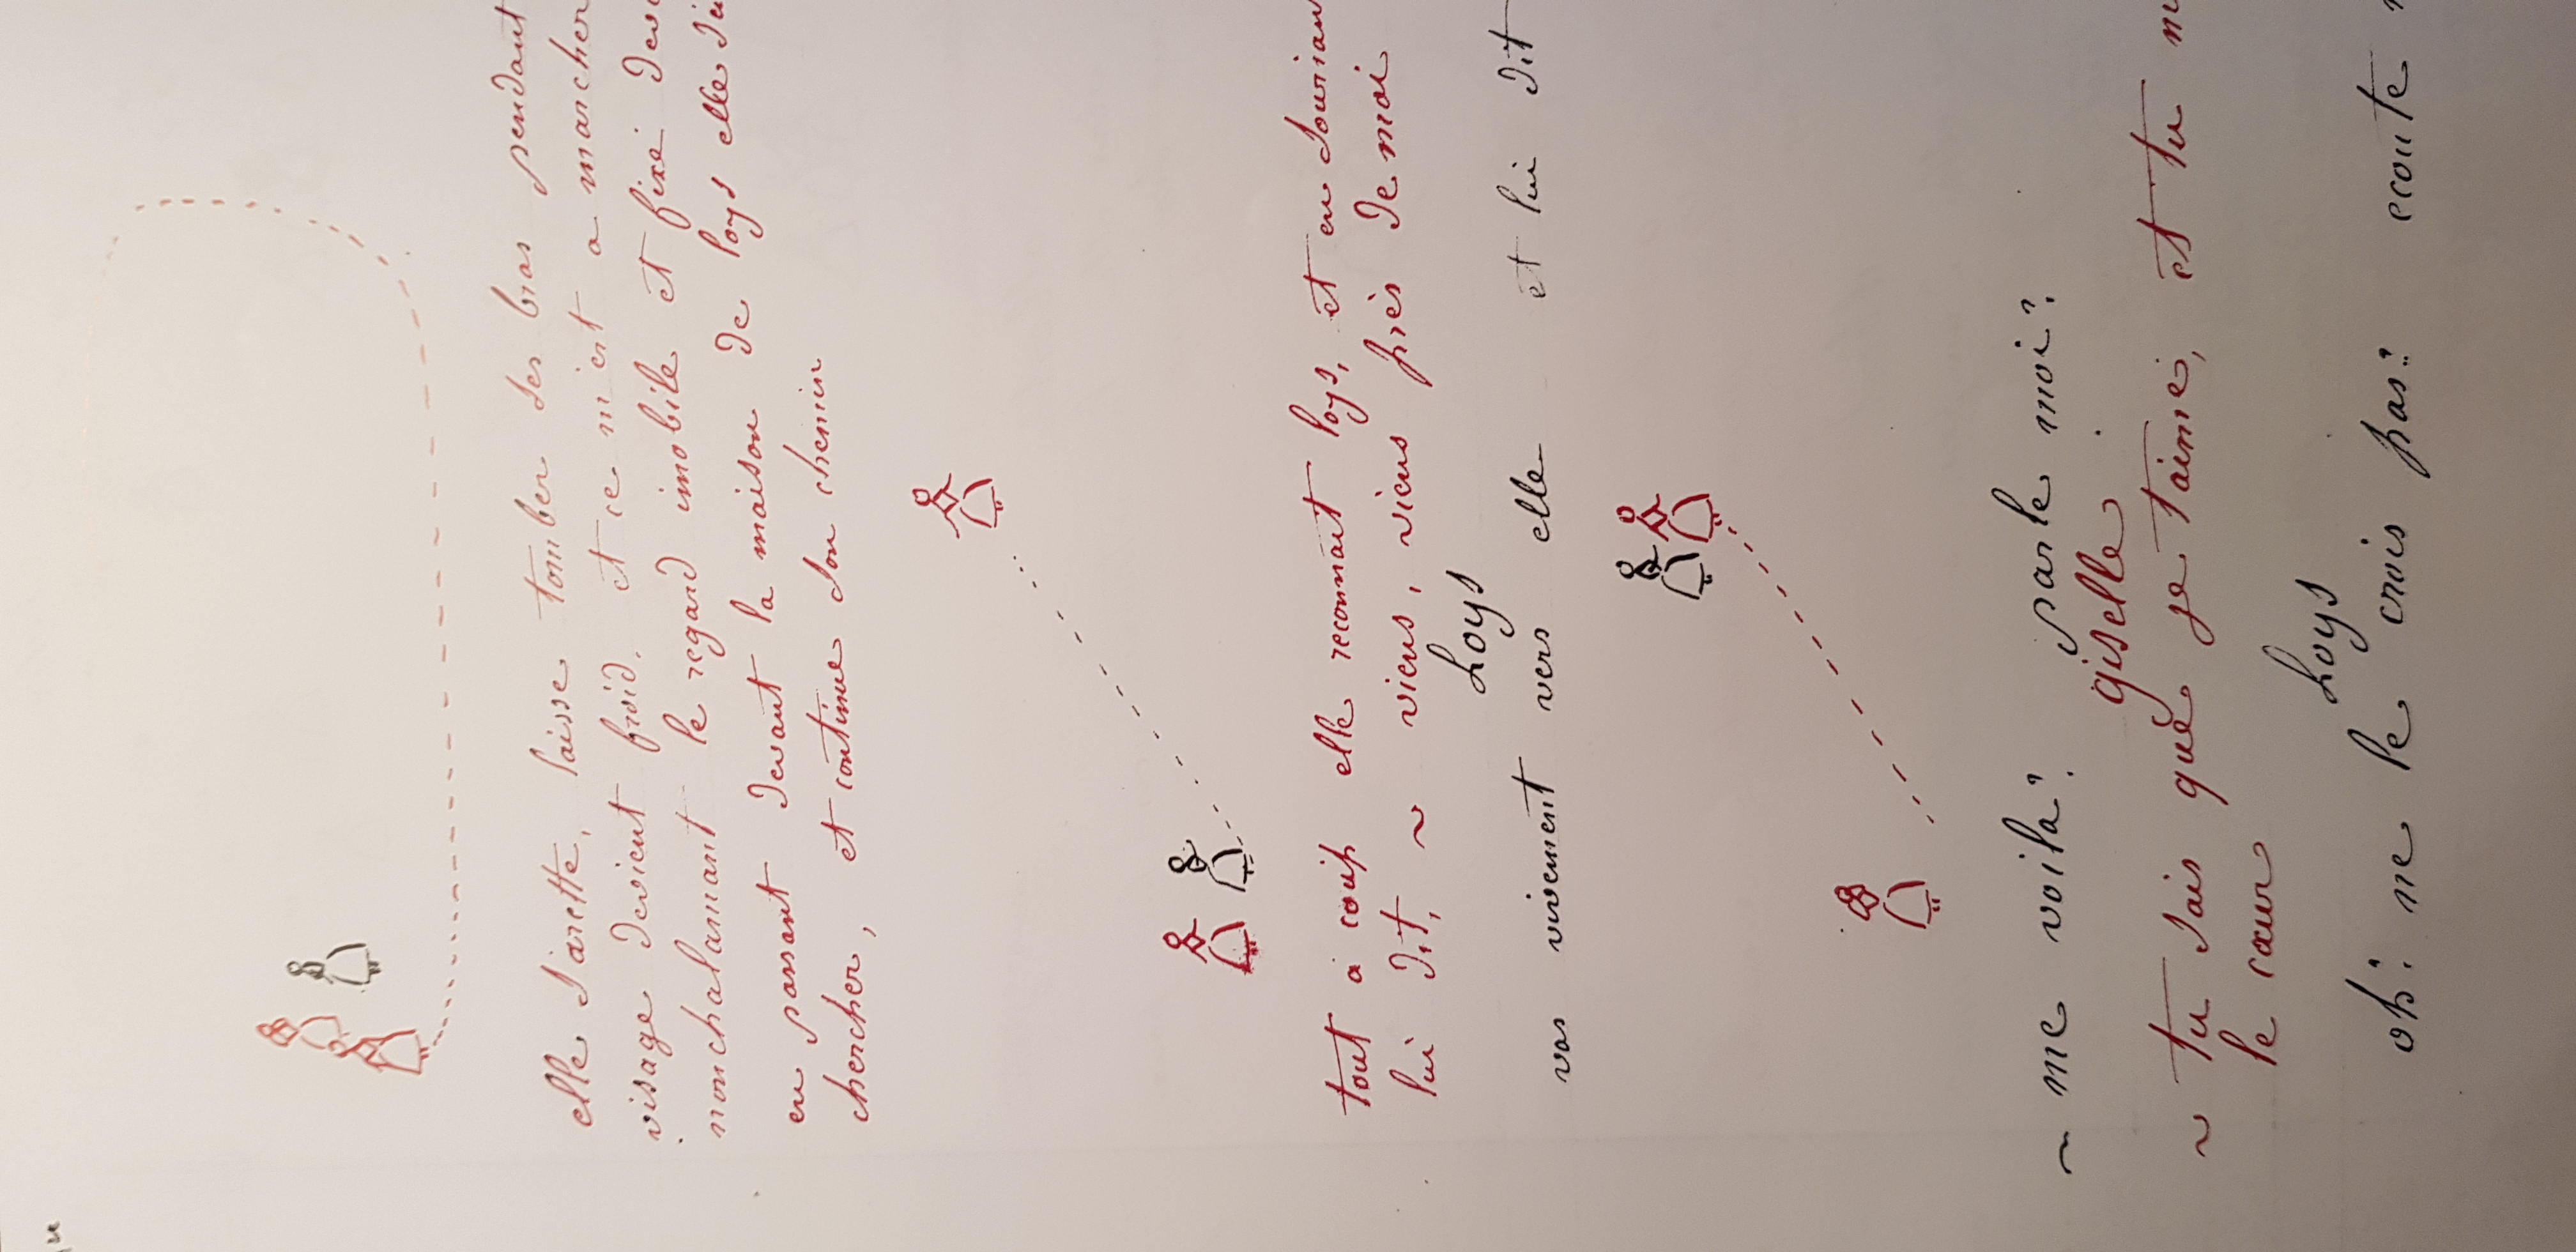 elle s'arette, laisse tomber ses bras pendant
visage devient froid. et ce met a marcher
nonchalamant le regard imobile et fixé
en passant devant la maison de loys elle
chercher, et continue son chemin
tout à coup elle reconnait loys, et en souriant
lui dit, ~ viens, viens près de moi
Loys
vas vivement vers elle et lui dit
~ me voila? parle moi?
giselle
~ tu sais que je t'aime, et tu
le cœur
Loys
oh! ne le crois pas! ecoute